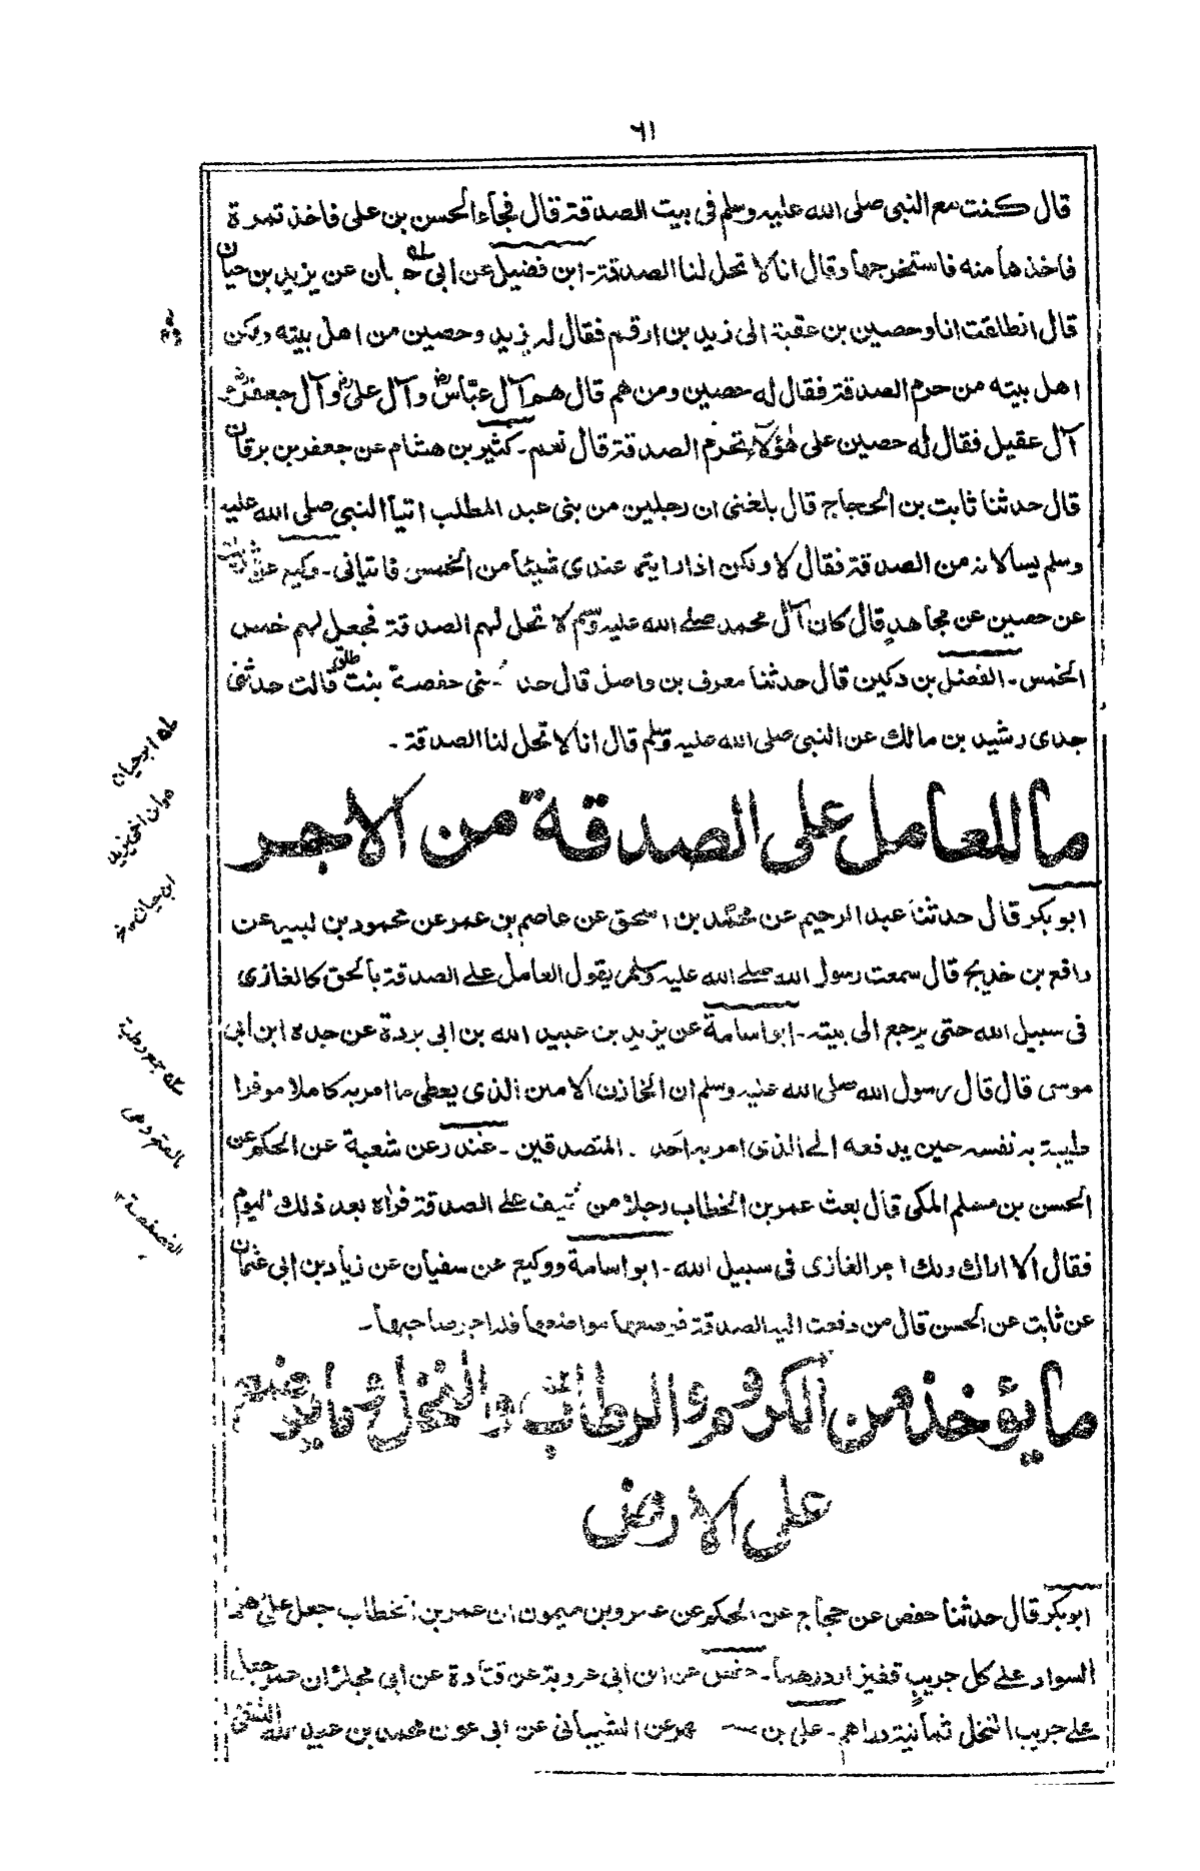 ٦١
قال كنت مع النبى صلى الله عليه وسلم فى بيت الصدقة قال فجاء الحسن بن على فاخذ تمرة
فاخذها منه فاستخرجها وقال انا لا تحل لنا الصدقة - ابن فضيل عن ابى حبان عن يزيد بن حيان
قال انطلقت انا وحصين بن عقبة الى زيد بن ارقم فقال له يزيد وحصين من اهل بيته ولكن
اهل بيته من حرم الصدقة فقال له حصين ومن هم قال هم آل عباس وآل على وآل جعفر و
آل عقيل فقال له حصين على هؤلاء تحرم الصدقة قال نعم - كثير بن هشام عن جعفر بن برقان
قال حدثنا ثابت بن الحجاج قال بلغنى ان رجلين من بنى عبد المطلب اتيا النبى صلى الله عليه
وسلم يسالانه من الصدقة فقال لا ولكن اذا رايتم عندى شيئا من الخمس فاتيانى - وكيع عن شريك
عن حصين عن مجاهد قال كان آل محمد صلى الله عليه وسلم لا تحل لهم الصدقة فجعل لهم خمس
الخمس - الفضل بن دكين قال حدثنا معرف بن واصل قال حد ثنى حفصة بنت طلق قالت حدثنى
جدى رشيد بن مالك عن النبى صلى الله عليه وسلم قال انا لا تحل لنا الصدقة -
ما للعامل على الصدقة من الاجر
ابو بكر قال حدثنا عبد الرحيم عن محمد بن اسحق عن عاصم بن عمر عن محمود بن لبيد عن
رافع بن خديج قال سمعت رسول الله صلى الله عليه وسلم يقول العامل على الصدقة بالحق كالغازى
فى سبيل الله حتى يرجع الى بيته - ابو اسامة عن يزيد بن عبيد الله بن ابى بردة عن جده ابن ابى
موسى قال قال رسول الله صلى الله عليه وسلم ان الخازن الامين الذى يعطى ما امر به كاملا موفرا
طيبة به نفسه حين يدفعه الى الذى امر به احد - المتصدقين - غندر عن شعبة عن الحكم عن
الحسن بن مسلم المكى قال بعث عمر بن الخطاب رجلا من ثقيف على الصدقة فرأه بعد ذلك اليوم
فقال الا اراك ولك اجر الغازى فى سبيل الله - ابو اسامة ووكيع عن سفيان عن زياد بن ابى عثمان
عن ثابت عن الحسن قال من دفعت اليه الصدقة فوضعها مواضعها فله اجر صاحبها -
ما يؤخذ من الكروم والرطاب والنخل وما يوضع
على الارض
ابو بكر قال حدثنا حفص عن حجاج عن الحكم عن عمرو بن ميمون ان عمر بن الخطاب جعل على اهل
السواد على كل جريب قفيزا ودرهما - حفص عن ابن ابى عروبة عن قتادة عن ابى مجلز ان عمر جعل
على جريب النخل ثمانية دراهم - على بن مسهر عن الشيبانى عن ابى عون محمد بن عبيد الله الثقفى
له ابو حيان
ابن حيان
له جمع رطبة
بالفتح وهى
الفصفصة